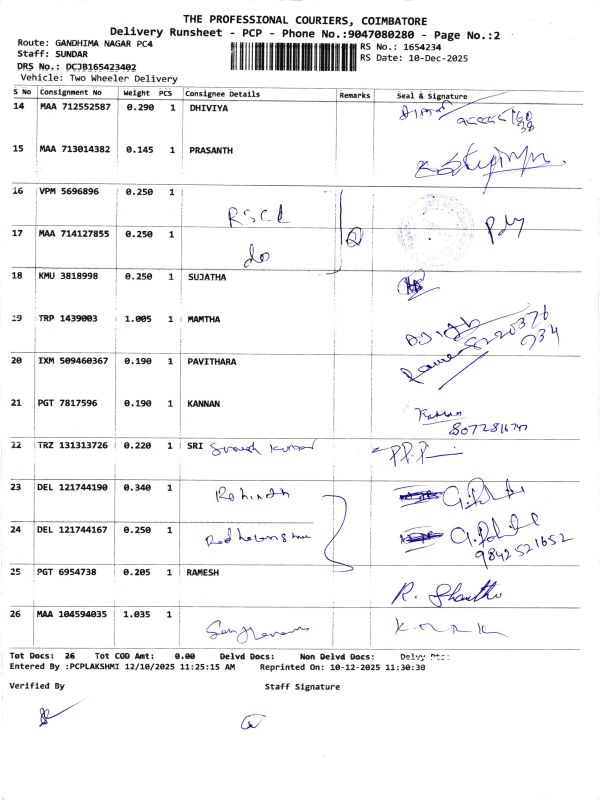 THE PROFESSIONAL COURIERS, COIMBATORE
Delivery Runsheet - PCP - Phone No.:9047080280 - Page No.:2
Route: GANDHIMA NAGAR PC4
Staff: SUNDAR
DRS No.: DCJB165423402
Vehicle: Two Wheeler Delivery
RS No.: 1654234
RS Date: 10-Dec-2025
S No Consignment No Weight PCS Consignee Details Remarks Seal & Signature
14 MAA 712552587 0.290 1 DHIVIYA
15 MAA 713014382 0.145 1 PRASANTH
16 VPM 5696896 0.250 1
17 MAA 714127855 0.250 1 do
18 KMU 3818998 0.250 1 SUJATHA
19 TRP 1439003 1.005 1 MAMTHA
20 IXM 509460367 0.190 1 PAVITHARA
21 PGT 7817596 0.190 1 KANNAN Kannan
22 TRZ 131313726 0.220 1 SRI Suresh Kumar
23 DEL 121744190 0.340 1
24 DEL 121744167 0.250 1 9842521652
25 PGT 6954738 0.205 1 RAMESH R. Shanthi
26 MAA 104594035 1.035 1
Tot Docs: 26 Tot COD Amt: 0.00 Delvd Docs: Non Delvd Docs: Delvy Ptc:
Entered By :PCPLAKSHMI 12/10/2025 11:25:15 AM Reprinted On: 10-12-2025 11:30:30
Verified By Staff Signature